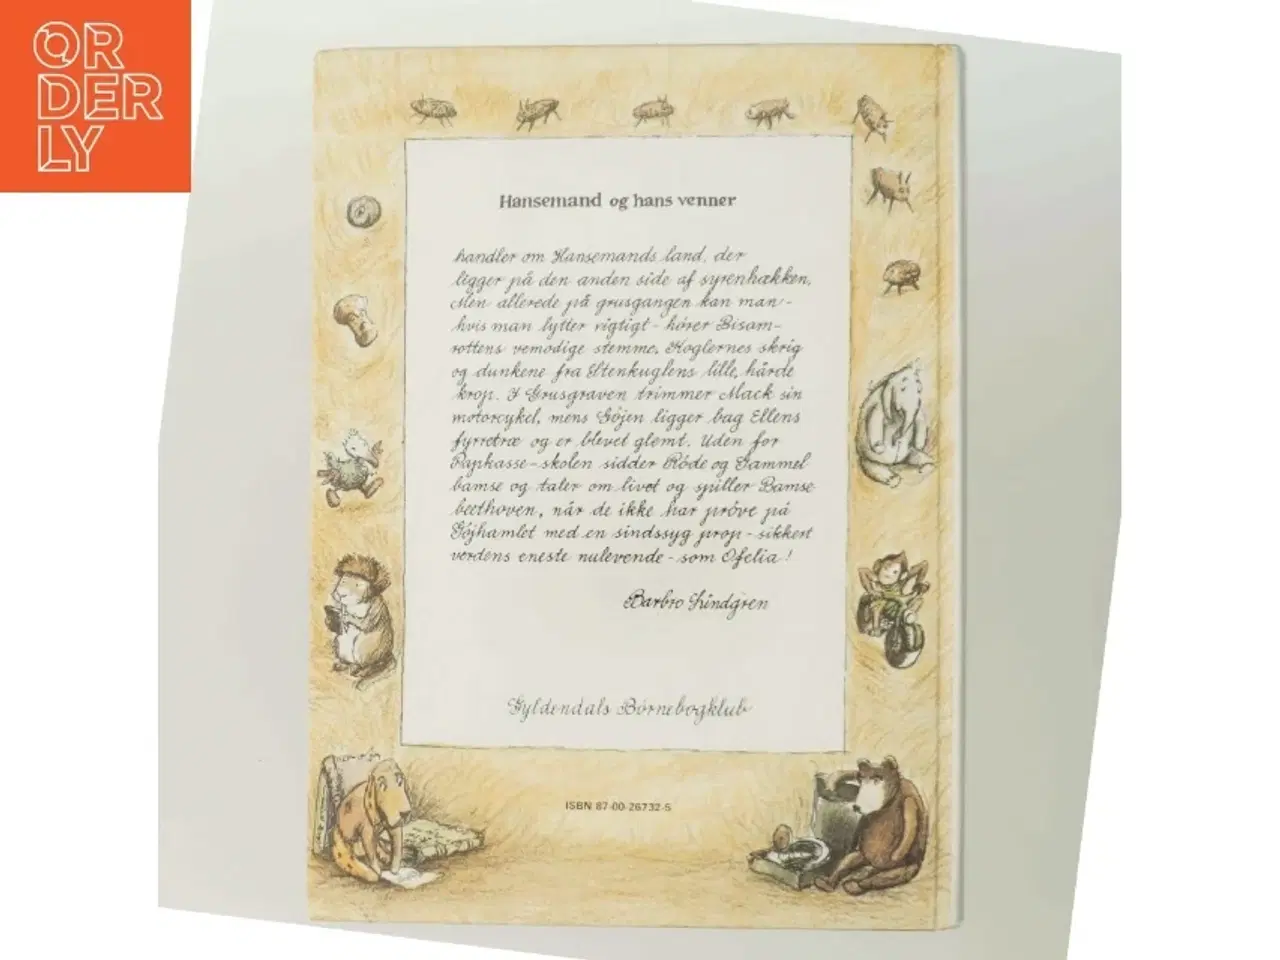 OR
DER
LY
Hansemand og hans venner
handler om Hansemands land, der
ligger på den anden side af syrenhækken.
Men allerede på grusgangen kan man -
hvis man lytter rigtigt - hører Bisam-
rottens vemodige stemme, Koglernes skrig
og dunkene fra Stenkuglens lille, hårde
krop. I Grusgraven trimmer Mack sin
motorcykel, mens Gøjen ligger bag Ellens
fyrretræ og er blevet glemt. Uden for
Papkasse-skolen sidder Røde og Gammel
bamse og taler om livet og spiller Bamse
beethoven, når de ikke har prøve på
Gøjhamlet med en sindssyg prop - sikkert
verdens eneste nulevende - som Ofelia!
Barbro Lindgren
Gyldendals Børnebogklub
ISBN 87-00-26732-5